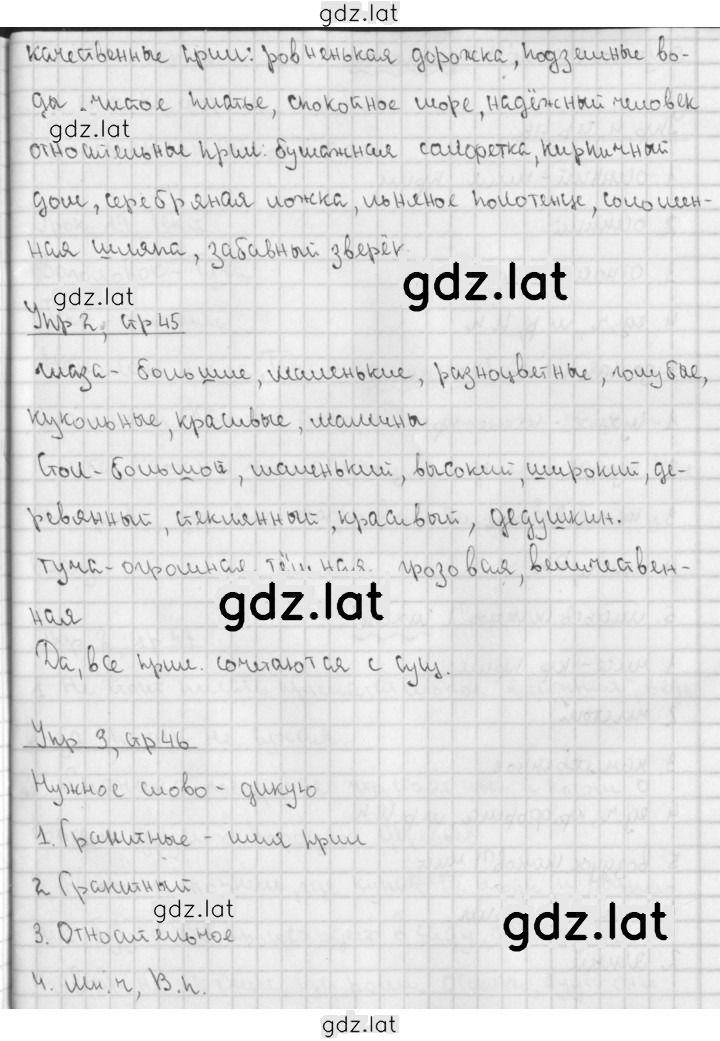 gdz.lat
качественные прил: ровненькая дорожка, подземные во-
ды, чистое платье, спокойное море, надёжный человек
gdz.lat
относительные прил: бумажная салфетка, кирпичный
дом, серебряная ложка, льняное полотенце, соломен-
ная шляпа, забавный зверёк
gdz.lat
gdz.lat
Упр 2, стр 45
глаза - большие, маленькие, разноцветные, голубые,
кукольные, красивые, мамины
Стол - большой, маленький, высокий, широкий, де-
ревянный, стеклянный, красивый, дедушкин.
туча - огромная, тёмная, грозовая, величествен-
ная
gdz.lat
Да, все прил. сочетаются с сущ.
Упр 3, стр 46
Нужное слово - дикую
1. Гранитные - имя прил
2 Гранитный
gdz.lat
gdz.lat
3. Относительное
4. Мн.ч, В.п.
gdz.lat